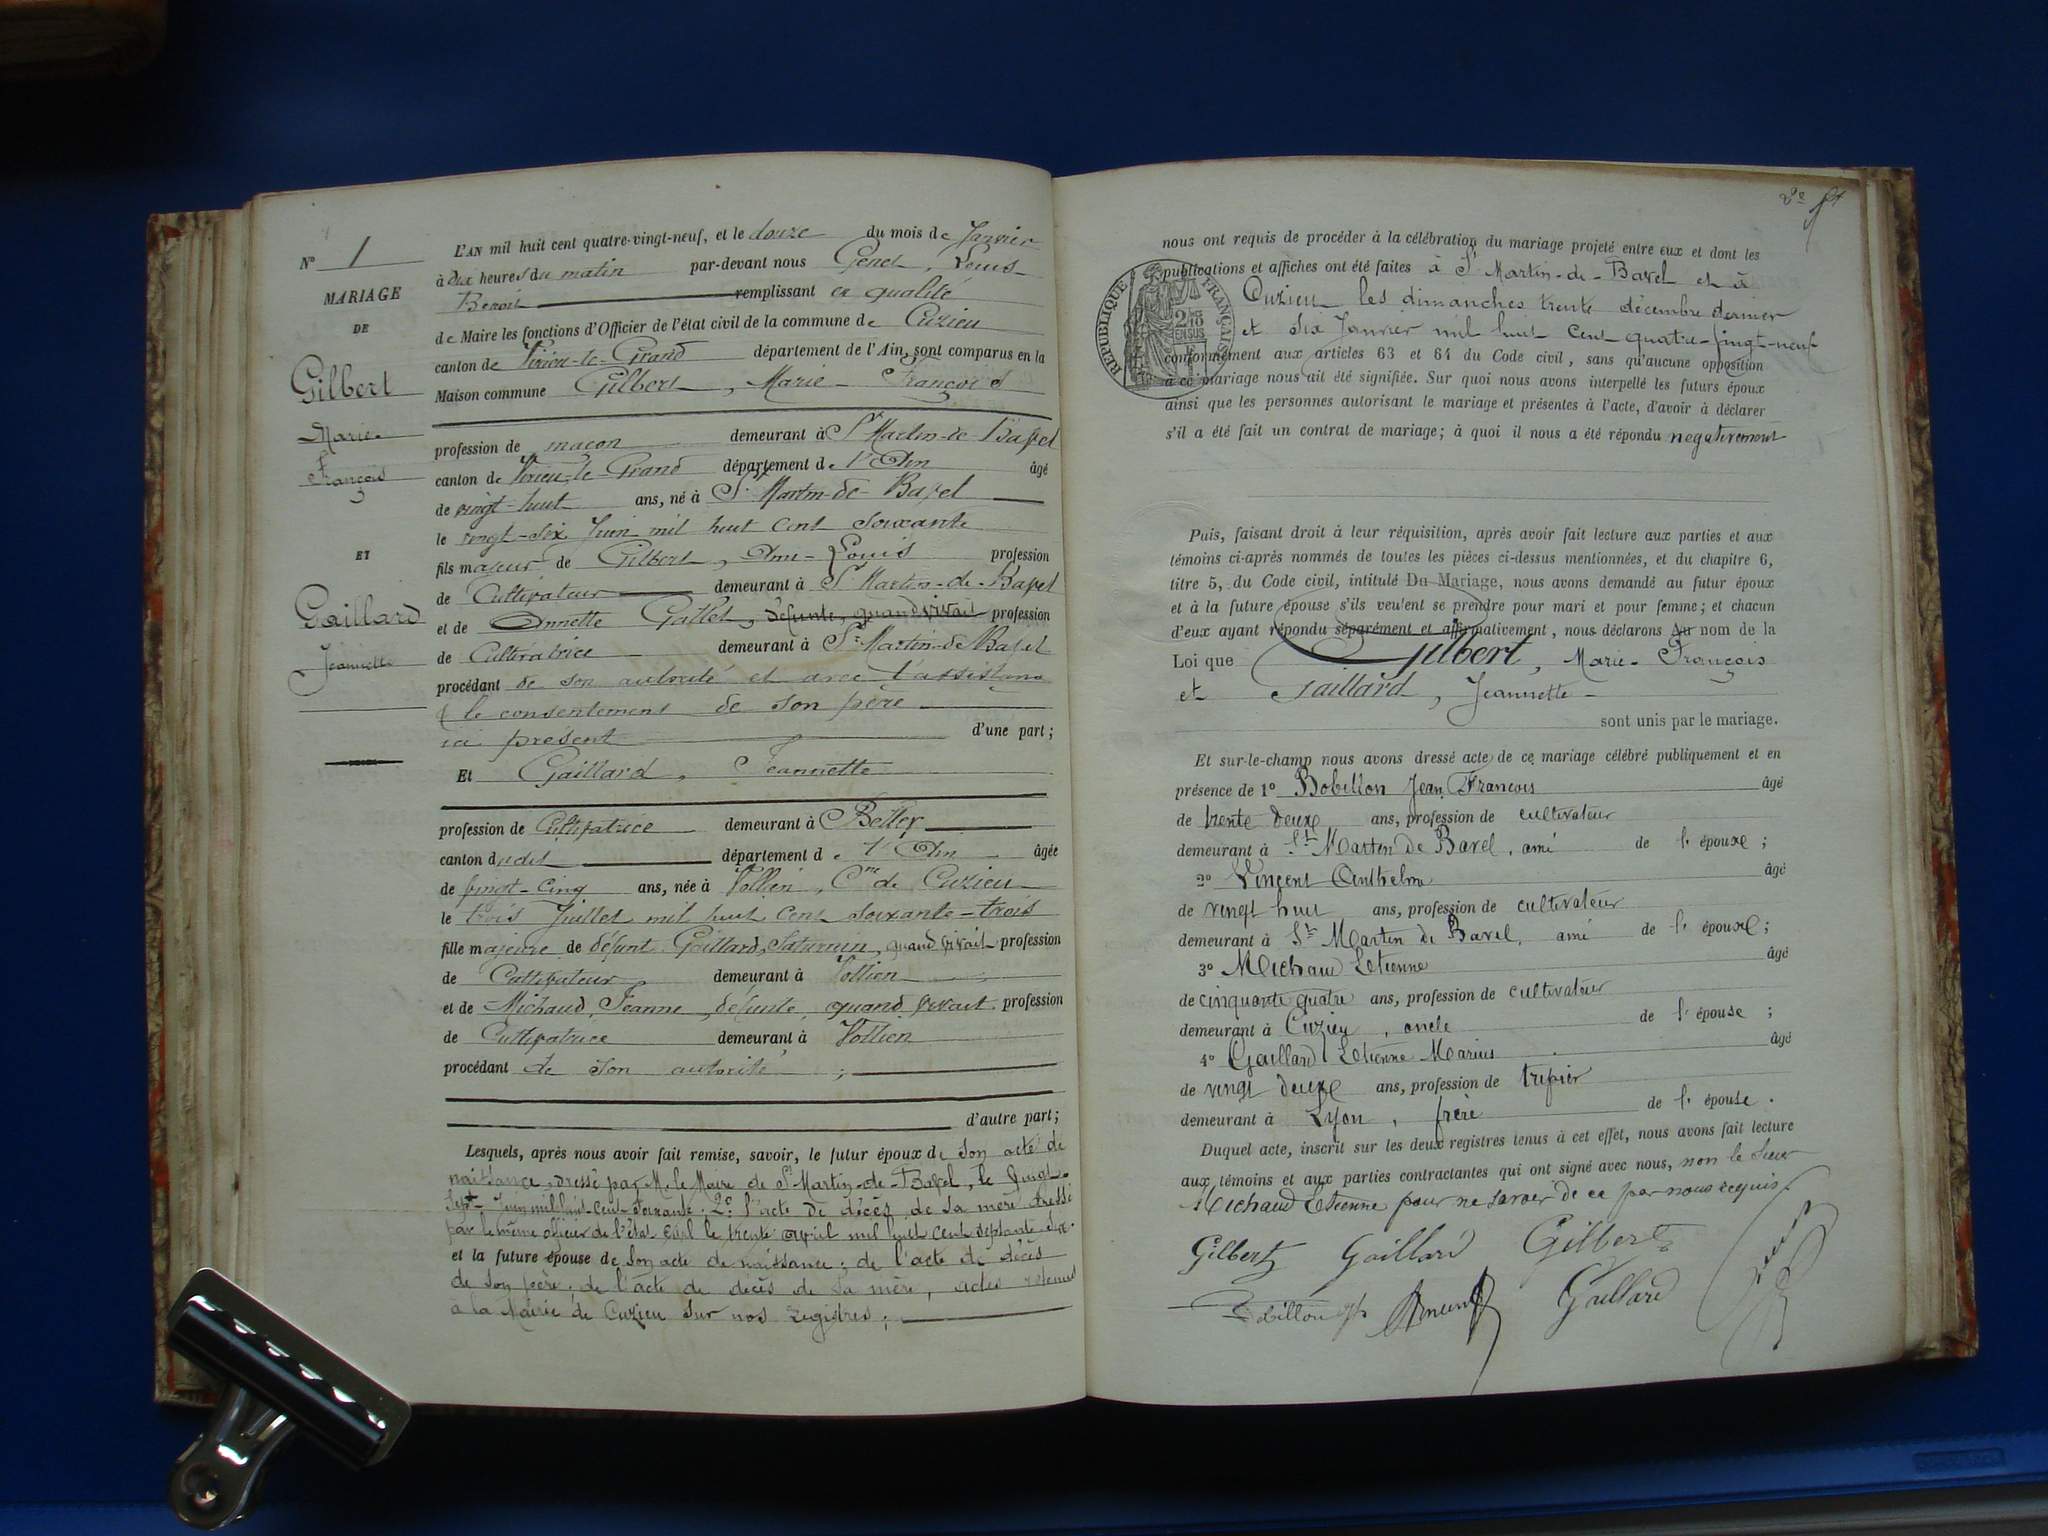 N° 1
MARIAGE
DE
Gilbert
Marie-
François
ET
Gaillard
Jeannette
L'AN mil huit cent quatre-vingt-neuf, et le douze du mois de Janvier
à dix heures du matin par-devant nous Genet, Louis
Benoit remplissant en qualité
de Maire les fonctions d'Officier de l'état civil de la commune de Cuzieu
canton de Virieu-le-Grand département de l'Ain, sont comparus en la
Maison commune Gilbert, Marie-François
profession de maçon demeurant à St Martin-de-Bavel
canton de Virieu-le-Grand département de l'Ain âgé
de vingt-huit ans, né à St Martin-de-Bavel
le vingt-six Juin mil huit cent soixante
fils majeur de Gilbert, Ame-Louis profession
de Cultivateur demeurant à St Martin-de-Bavel
et de Annette Gallet, défunte, quand vivait profession
de Cultivatrice demeurant à St Martin-de-Bavel
procédant de son autorité et avec l'assistance
& le consentement de son père
ici présent d'une part;
Et Gaillard, Jeannette
profession de Cultivatrice demeurant à Belley
canton dudit département de l'Ain âgée
de vingt-cinq ans, née à Vollien, Cne de Cuzieu
le trois Juillet mil huit cent soixante-trois
fille majeure de défunt Gaillard, Saturnin, quand vivait profession
de Cultivateur demeurant à Vollien
et de Michaud, Jeanne, défunte, quand vivait profession
de Cultivatrice demeurant à Vollien
procédant de son autorité ;
d'autre part;
Lesquels, après nous avoir fait remise, savoir, le futur époux de son acte de
naissance, dressé par M. le Maire de St Martin-de-Bavel, le vingt-
sept Juin mil huit-cent-soixante; 2° l'acte de décès de sa mère dressé
par le même officier de l'état civil le trente avril mil huit cent septante dix.
et la future épouse de son acte de naissance; de l'acte de décès
de son père; de l'acte de décès de sa mère, actes retenus
à la Mairie de Cuzieu sur nos registres;
nous ont requis de procéder à la célébration du mariage projeté entre eux et dont les
publications et affiches ont été faites à St Martin-de-Bavel et à
Cuzieu les dimanches trente décembre dernier
et six Janvier mil huit cent quatre-vingt-neuf
conformément aux articles 63 et 64 du Code civil, sans qu'aucune opposition
à ce mariage nous ait été signifiée. Sur quoi nous avons interpellé les futurs époux
ainsi que les personnes autorisant le mariage et présentes à l'acte, d'avoir à déclarer
s'il a été fait un contrat de mariage; à quoi il nous a été répondu negativement
RÉPUBLIQUE FRANÇAISE
EN SUS
Puis, faisant droit à leur réquisition, après avoir fait lecture aux parties et aux
témoins ci-après nommés de toutes les pièces ci-dessus mentionnées, et du chapitre 6,
titre 5, du Code civil, intitulé Du Mariage, nous avons demandé au futur époux
et à la future épouse s'ils veulent se prendre pour mari et pour femme; et chacun
d'eux ayant répondu séparément et affirmativement, nous déclarons au nom de la
Loi que Gilbert, Marie-François
et Gaillard, Jeannette -
sont unis par le mariage.
Et sur-le-champ nous avons dressé acte de ce mariage célébré publiquement et en
présence de 1° Bobillon Jean François âgé
de trente deux ans, profession de cultivateur
demeurant à St Martin de Bavel, ami de l'épouxe;
2° Vincent Anthelme âgé
de vingt huit ans, profession de cultivateur
demeurant à St Martin de Bavel, ami de l'épouxe;
3° Michaud Etienne âgé
de cinquante quatre ans, profession de cultivateur
demeurant à Cuzieu, oncle de l'épouse;
4° Gaillard Etienne Marius âgé
de vingt deux ans, profession de tripier
demeurant à Lyon, frère de l'épouse.
Duquel acte, inscrit sur les deux registres tenus à cet effet, nous avons fait lecture
aux témoins et aux parties contractantes qui ont signé avec nous, non le sieur
Michaud Etienne pour ne savoir de ce par nous requis.
Gilbert Gaillard Gilbert
Bobillon Vincent Gaillard